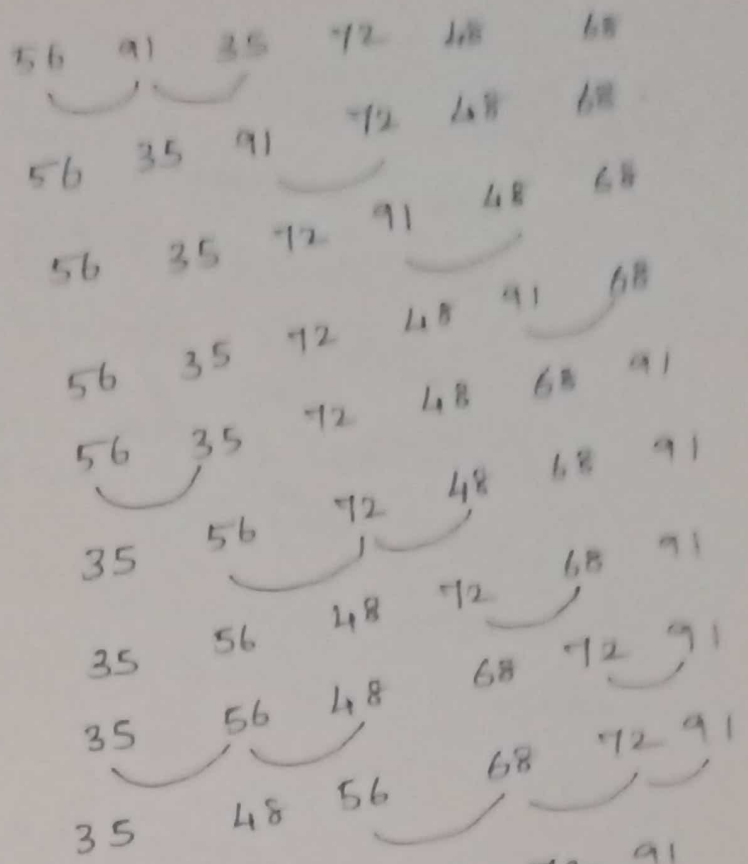 56 91 35 72 48 68
56 35 91 72 48 68
56 35 72 91 48 68
56 35 72 48 91 68
56 35 72 48 68 91
35 56 72 48 68 91
35 56 48 72 68 91
35 56 48 68 72 91
35 48 56 68 72 91
91